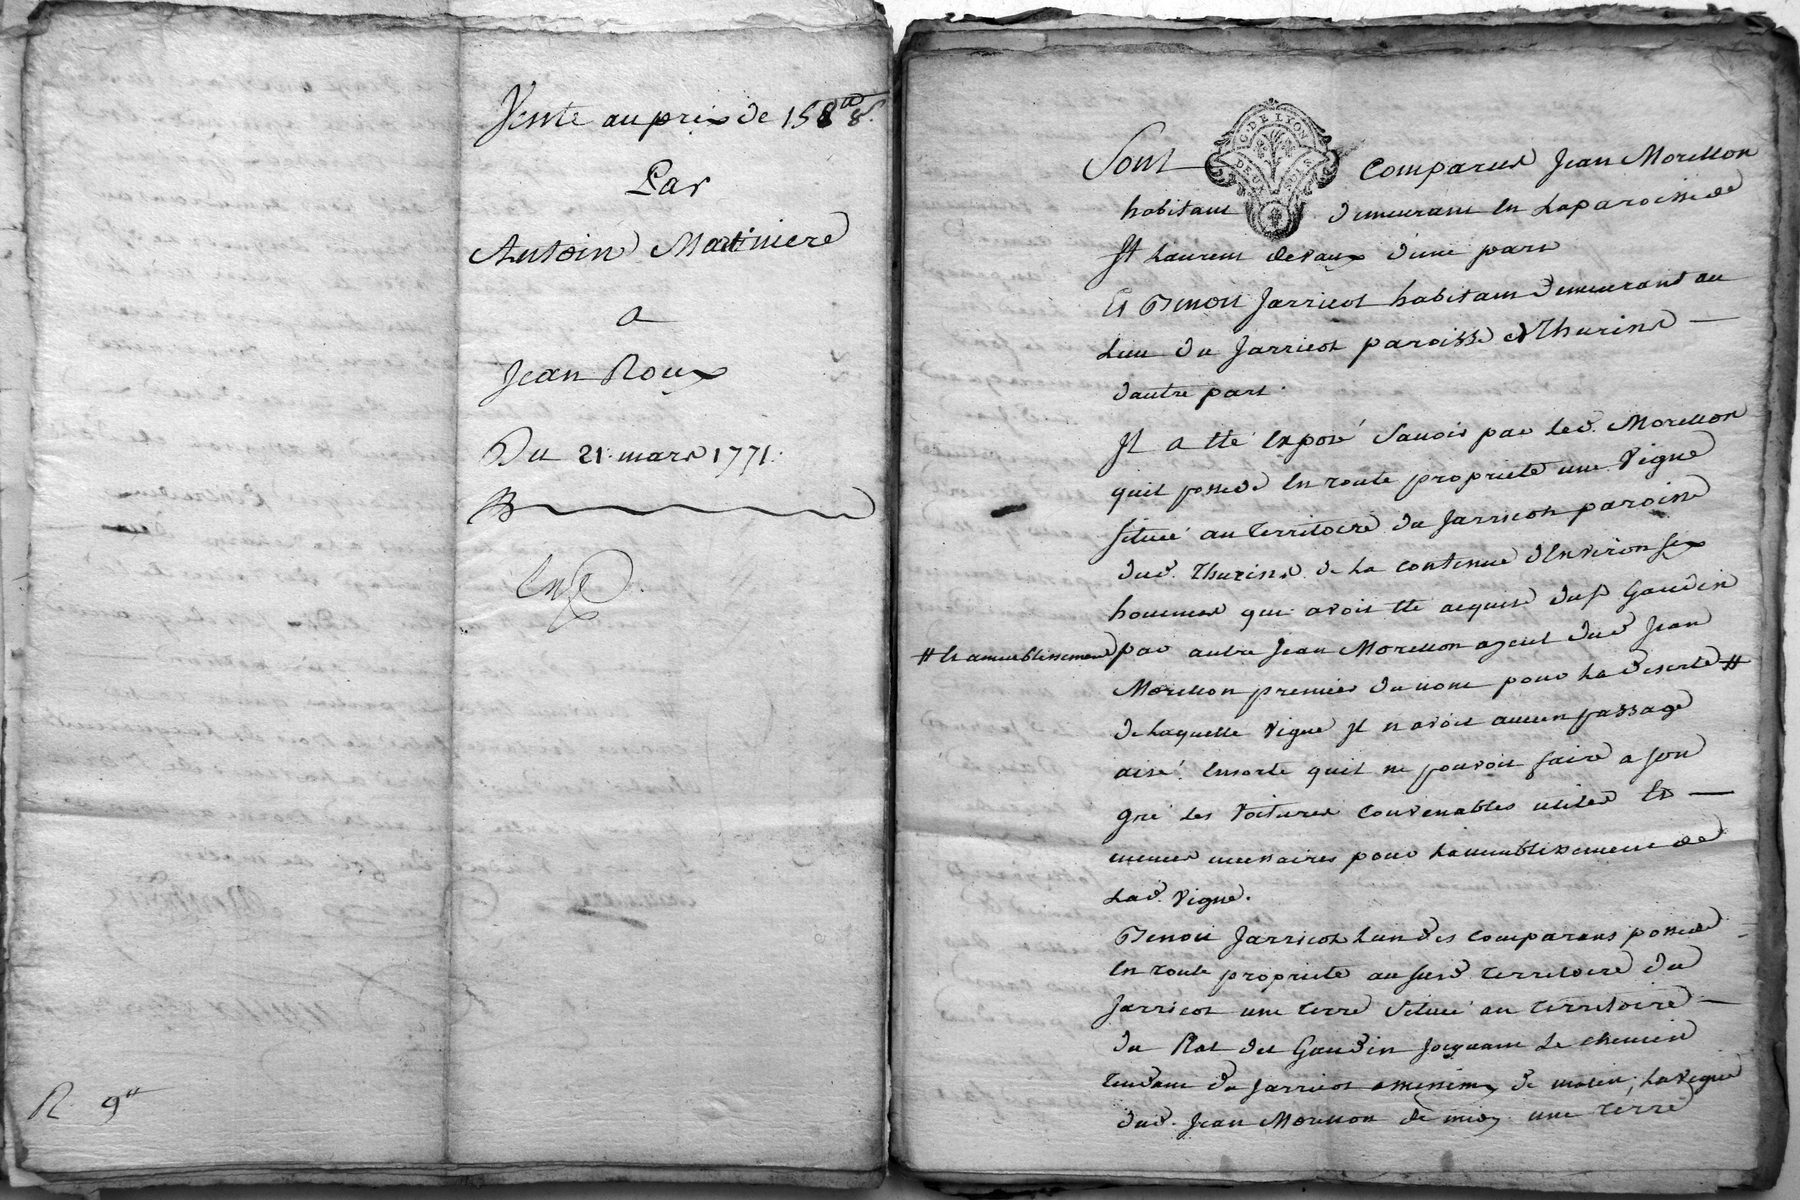 Vente au prix de 158 tt 8 s.
Par
Antoin Martiniere
a
Jean Roux
Du 21. mars 1771.
R 9 tt
G. DE LYON
DEUX SOLS
Sont Comparus Jean Morellon
habitant demeurant en Laparoisse de
St Laurent devaux d'une part
Et Benoit Jarricot habitant demeurant au
Lieu du Jarricot paroisse de Thurins
dautre part.
Jl a Eté Exposé Savoir par led. Morellon
quil possede En toute proprieté une Vigne
Située au territoire du Jarricot paroisse
dud. Thurins de La contenue d'Environ Six
hommes qui avoit Eté acquise du Sr Gaudin
# Et ameublissement
par autre Jean Morellon ayeul dud. Jean
Morellon premier du nom pour La deserte #
de Laquelle Vigne Jl n avoit aucun passage
aisé. Ensorte quil ne pouvoit faire a Son
gré Les Voitures Convenables utiles Et
memes necessaires pour Lameublissement de
Lad. Vigne.
Benoit Jarricot Lun des comparans possede
En toute proprieté au Susd. territoire du
Jarricot une terre Située au territoire
du Plat del Gaudin Joignant Le chemin
tendant du Jarricot a de matin, La Vigne
dud. Jean Morellon de midy une terre